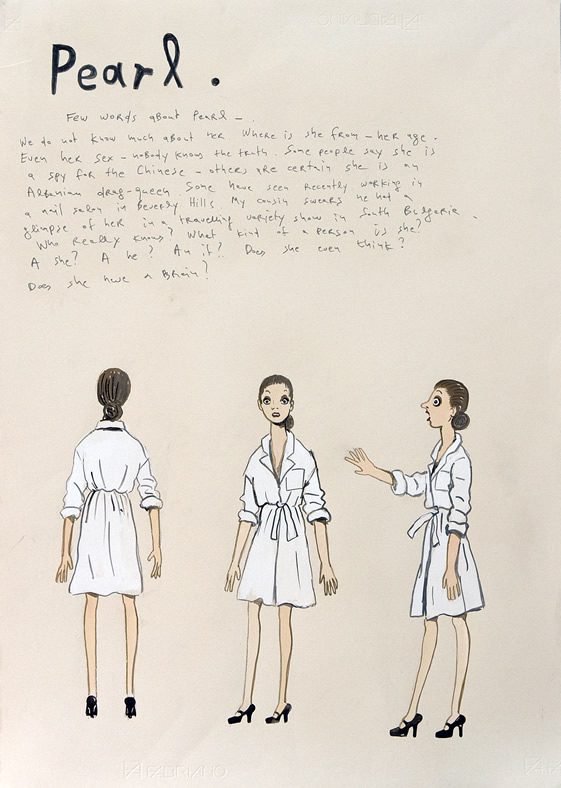 Pearl.
Few words about Pearl –.
We do not know much about her Where is she from – her age.
Even her sex – nobody knows the truth. Some people say she is
a spy for the Chinese – others are certain she is an
Albanian drag-queen. Some have seen recently working in
a nail salon in Beverly Hills. My cousin swears he had a
glimpse of her in a travelling variety show in South Bulgaria.
Who really knows? What kind of a person is she?
A she? A he? An it? Does she even think?
Does she have a Brain?
FABRIANO